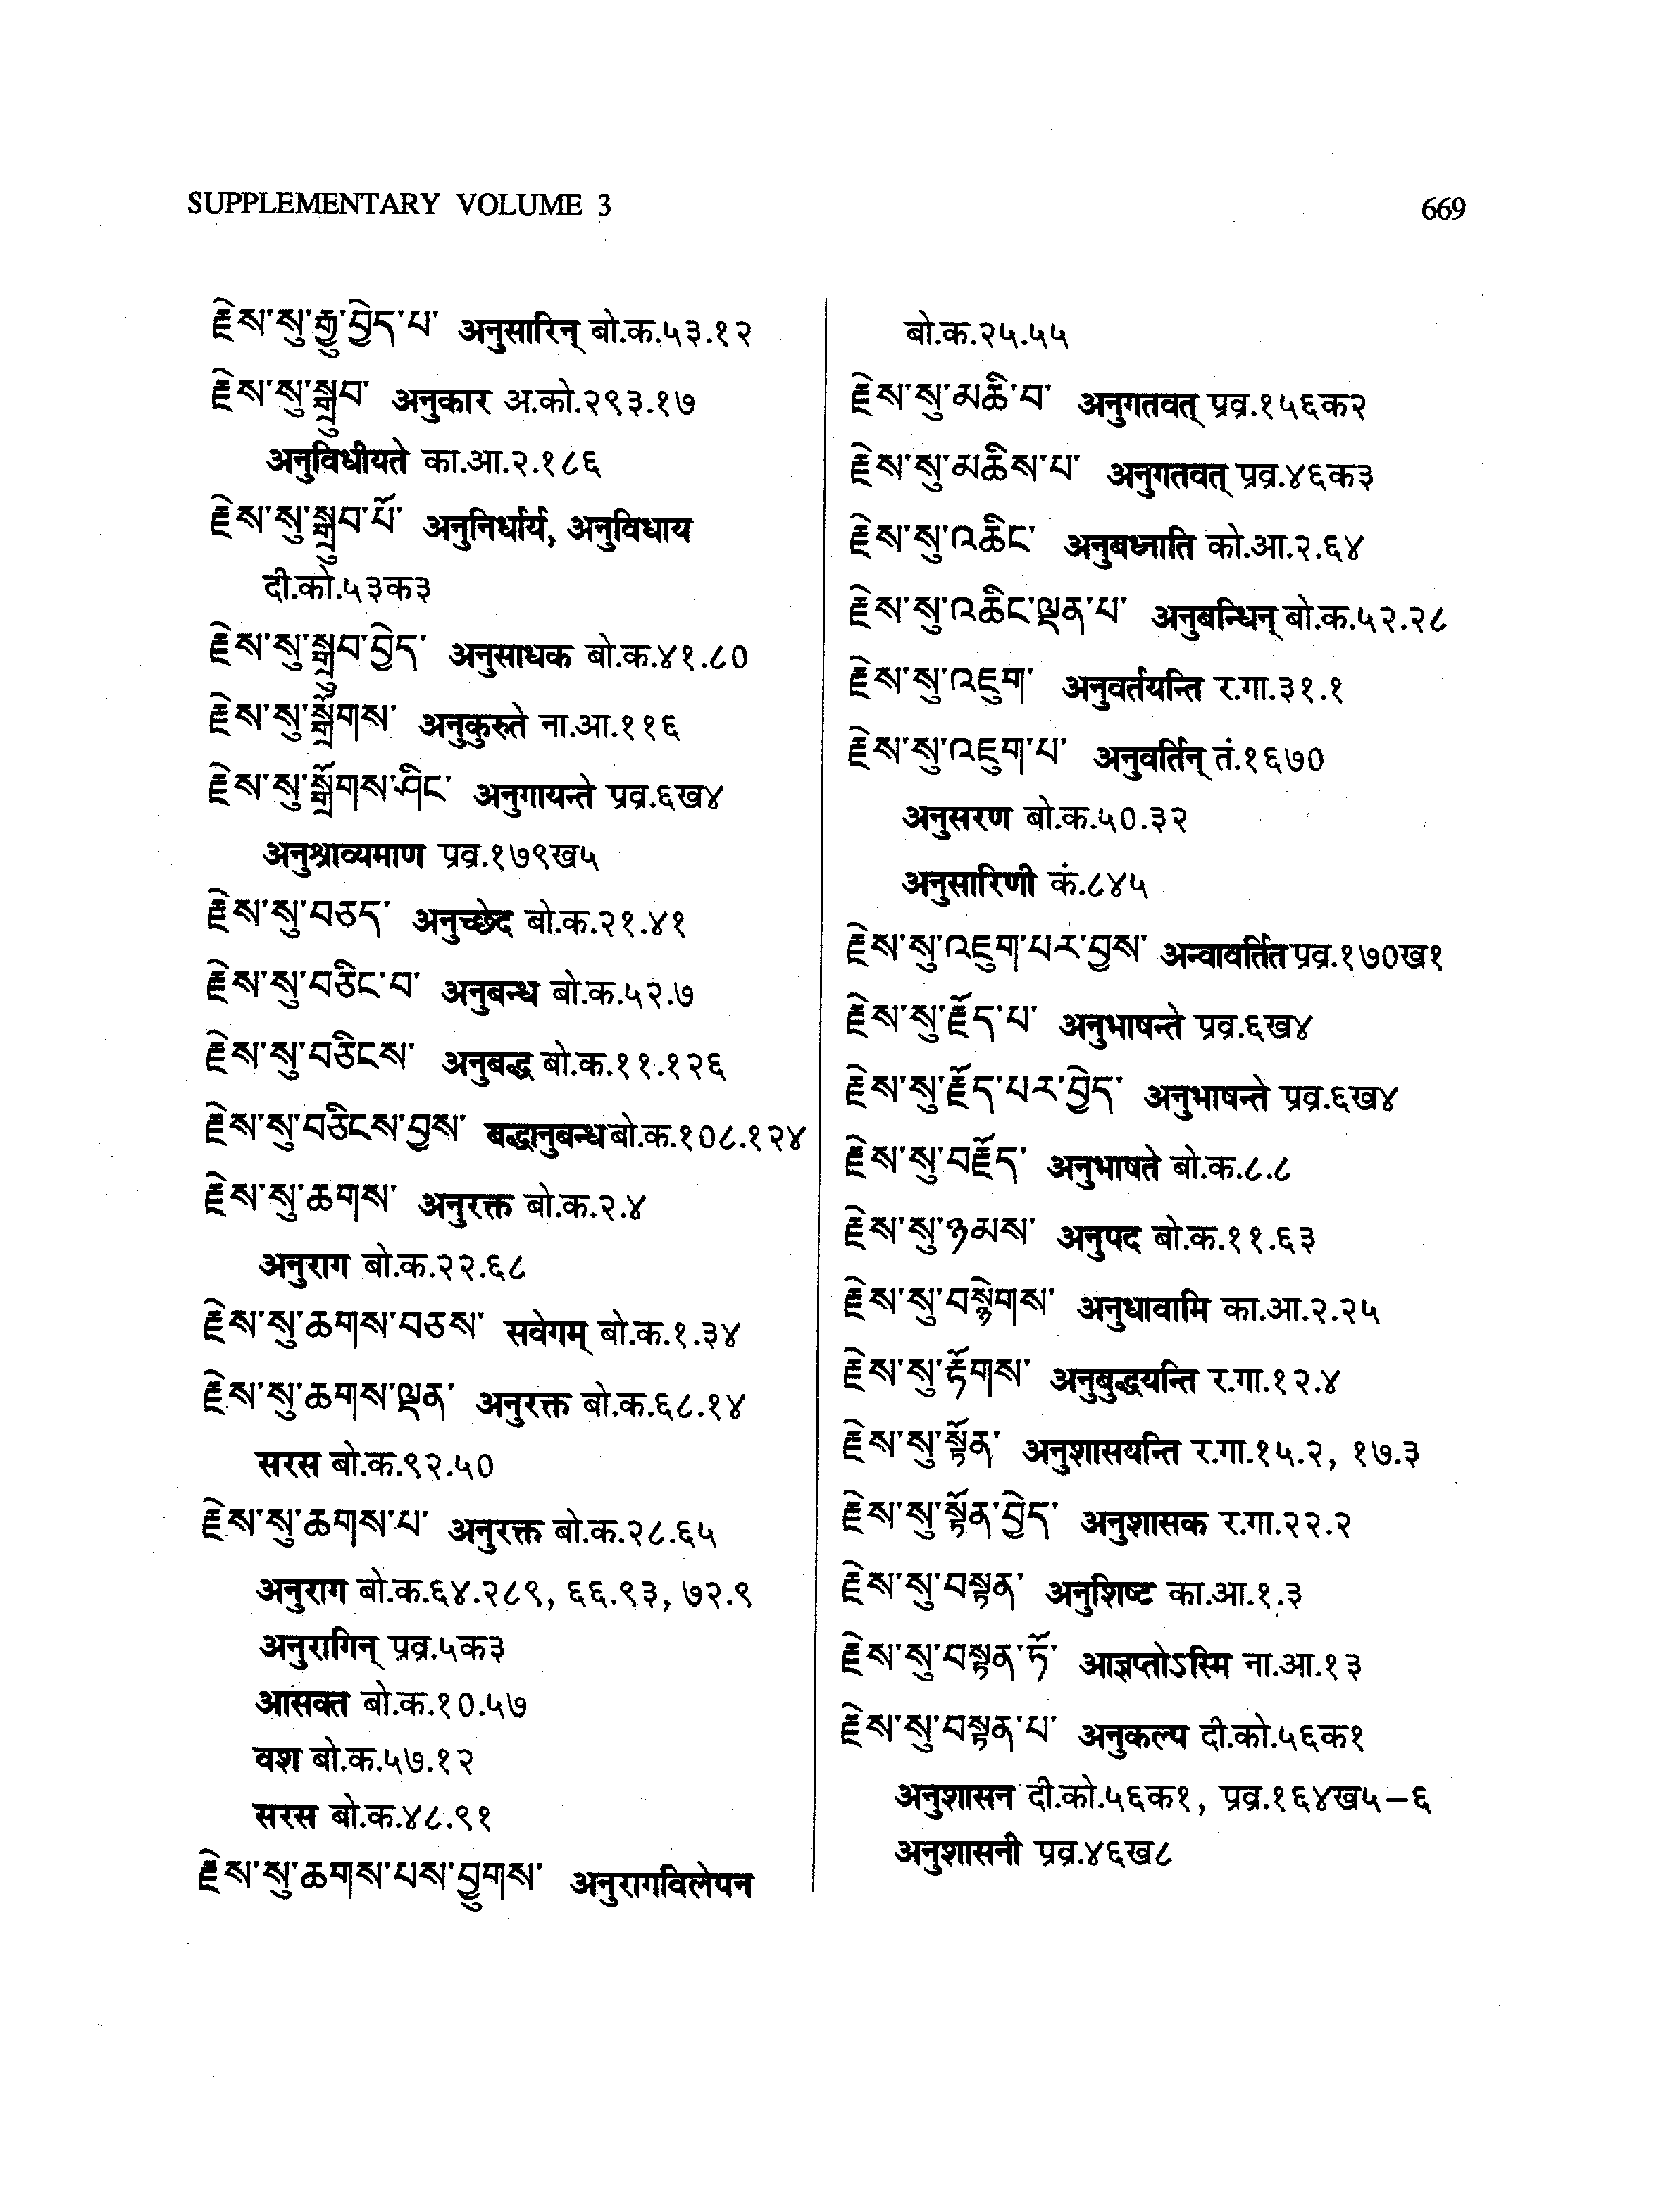 SUPPLEMENTARY VOLUME 3
669
རྗེས་སུ་རྒྱུ་བྱེད་པ་ अनुसारिन् बो.क.५३.१२
རྗེས་སུ་སྒྲུབ་ अनुकार अ.को.२९३.१७
अनुविधीयते का.आ.२.१८६
རྗེས་སུ་སྒྲུབ་པོ་ अनुनिर्धार्य, अनुविधाय
दी.को.५३क३
རྗེས་སུ་སྒྲུབ་བྱེད་ अनुसाधक बो.क.४१.८०
རྗེས་སུ་སྒྲོགས་ अनुकुरुते ना.आ.११६
རྗེས་སུ་སྒྲོགས་ཤིང་ अनुगायन्ते प्रव्र.६ख४
अनुश्राव्यमाण प्रव्र.१७९ख५
རྗེས་སུ་བཅད་ अनुच्छेद बो.क.२१.४१
རྗེས་སུ་བཅིང་བ་ अनुबन्ध बो.क.५२.७
རྗེས་སུ་བཅིངས་ अनुबद्ध बो.क.११.१२६
རྗེས་སུ་བཅིངས་བྱས་ बद्धानुबन्ध बो.क.१०८.१२४
རྗེས་སུ་ཆགས་ अनुरक्त बो.क.२.४
अनुराग बो.क.२२.६८
རྗེས་སུ་ཆགས་བཅས་ सवेगम् बो.क.१.३४
རྗེས་སུ་ཆགས་ལྡན་ अनुरक्त बो.क.६८.१४
सरस बो.क.९२.५०
རྗེས་སུ་ཆགས་པ་ अनुरक्त बो.क.२८.६५
अनुराग बो.क.६४.२८९, ६६.९३, ७२.९
अनुरागिन् प्रव्र.५क३
आसक्त बो.क.१०.५७
वश बो.क.५७.१२
सरस बो.क.४८.९१
རྗེས་སུ་ཆགས་པས་བྱུགས་ अनुरागविलेपन
बो.क.२५.५५
རྗེས་སུ་མཆི་བ་ अनुगतवत् प्रव्र.१५६क२
རྗེས་སུ་མཆིས་པ་ अनुगतवत् प्रव्र.४६क३
རྗེས་སུ་འཆིང་ अनुबध्नाति को.आ.२.६४
རྗེས་སུ་འཆིང་ལྡན་པ་ अनुबन्धिन् बो.क.५२.२८
རྗེས་སུ་འཇུག་ अनुवर्तयन्ति र.गा.३१.१
རྗེས་སུ་འཇུག་པ་ अनुवर्तिन् तं.१६७०
अनुसरण बो.क.५०.३२
अनुसारिणी कं.८४५
རྗེས་སུ་འཇུག་པར་བྱས་ अन्वावर्तित प्रव्र.१७०ख१
རྗེས་སུ་རྗོད་པ་ अनुभाषन्ते प्रव्र.६ख४
རྗེས་སུ་རྗོད་པར་བྱེད་ अनुभाषन्ते प्रव्र.६ख४
རྗེས་སུ་བརྗོད་ अनुभाषते बो.क.८.८
རྗེས་སུ་ཉམས་ अनुपद बो.क.११.६३
རྗེས་སུ་བསྙེགས་ अनुधावामि का.आ.२.२५
རྗེས་སུ་རྟོགས་ अनुबुद्धयन्ति र.गा.१२.४
རྗེས་སུ་སྟོན་ अनुशासयन्ति र.गा.१५.२, १७.३
རྗེས་སུ་སྟོན་བྱེད་ अनुशासक र.गा.२२.२
རྗེས་སུ་བསྟན་ अनुशिष्ट का.आ.१.३
རྗེས་སུ་བསྟན་ཏོ་ आज्ञप्तोऽस्मि ना.आ.१३
རྗེས་སུ་བསྟན་པ་ अनुकल्प दी.को.५६क१
अनुशासन दी.को.५६क१, प्रव्र.१६४ख५–६
अनुशासनी प्रव्र.४६ख८